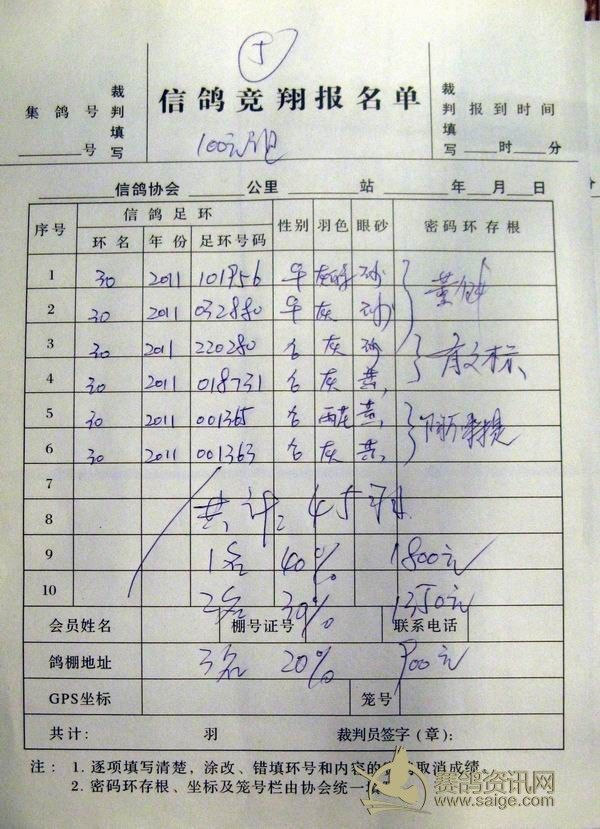 5
集鸽号
____号
裁判填写
信鸽竞翔报名单
100元组
裁判填写
报到时间
____时____分
________信鸽协会 ________公里 ________站 ________年____月____日
序号 信鸽足环 性别 羽色 眼砂 密码环存根
环名 年份 足环号码
1 30 2011 101956 早 砂
2 30 2011 032880 早 灰 砂
3 30 2011 220280 合 灰 砂
4 30 2011 018731 合 灰 黄
5 30 2011 001365 合 雨花 黄
6 30 2011 001363 合 灰 黄
7
8 共计: 45羽
9 1名 40% 1800元
10
2名 30% 1350元
会员姓名 棚号证号 联系电话
鸽棚地址 3名 20% 900元
GPS坐标 笼号
共计: 羽 裁判员签字(章):
注: 1. 逐项填写清楚,涂改、错填环号和内容的 取消成绩。
2. 密码环存根、坐标及笼号栏由协会统一
赛鸽资讯网
www.saige.com